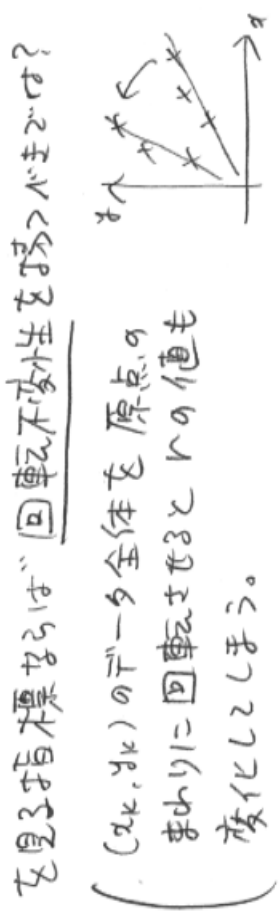 を見る指標ならば 回転不変性を持つべきでは?
(xk, yk)のデータ全体を原点の
まわりに回転させるとrの値も
変化してしまう。
x
y